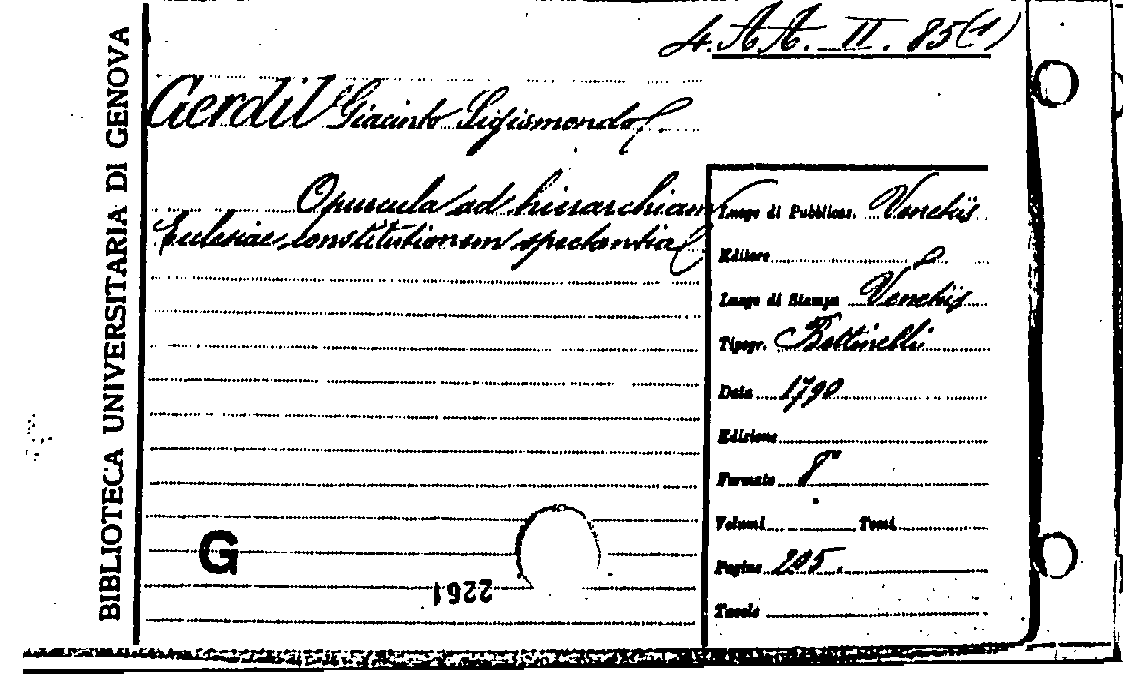 BIBLIOTECA UNIVERSITARIA DI GENOVA
4. A A. II. 85(1)
Gerdil Giacinto Sigismondo
Opuscula ad hierarchiam
Ecclesiae constitutionem spectantia
Luogo di Pubblicaz. Venetiis
Editore
Luogo di Stampa Venetiis
Tipogr. Bettinelli
Data 1790
Edizione
Formato 8°
Volumi Tomi
Pagine 205.
Tavole
G
2261